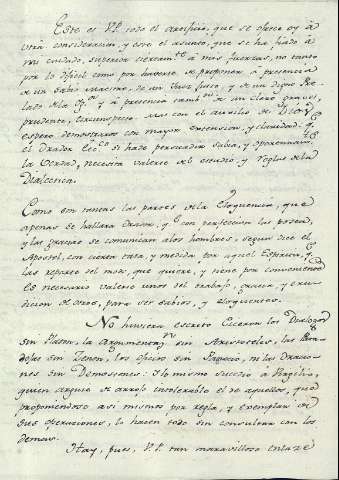 Este es P.P. todo el artificio, que se ofrece oy à
vtra consideracion, y este el asunto, que se ha fiado à
mi cuidado, superior ciertam.te à mis fuerzas, no tanto
por lo dificil como por haverse de proponer à presencia
de un sabio Maestro, de un Juez justo, y de un digno Pre-
lado dela y à presencia tambien de un claro
prudente, circunspecto. Mas con el auxilio de Dios
espero demostraros con mayor extension, y claridad. q.e
el Orador Ecc.co si hade persuadir sabia, y oportunam.te
la Verdad, necesita valerse del estudio, y reglas dela
Dialectica.
Como son tantas las partes dela Eloquencia, que
apenas se hallara Orador, q.e con perfeccion las posea,
y las gracias se comunican alos hombres, segun dice el
Apostol, con cierta tasa, y medida por aquel Espiritu, q.e
las reparte del modo, que quiere, y tiene por conveniente
es necesario valerse unos del trabajo, gracia, y eru-
dicion de otros, para ser sabios, y eloquentes.
No huviera escrito Ciceron los Dialogos
sin Platon, la Argumentac.n sin Aristoteles, las Para-
dojas sin Zenon, los oficios sin Panecio, ni las Oracio-
nes sin Demostenes: Y lo mismo sucedio à Virgilio,
quien arguie de arrojo intolerable el de aquellos, que
proponiendose asi mismos por regla, y exemplar de
sus operaciones, lo hacen todo sin consultar con los
demas.
Hay, pues, P.P. tan maravilloso enlaze